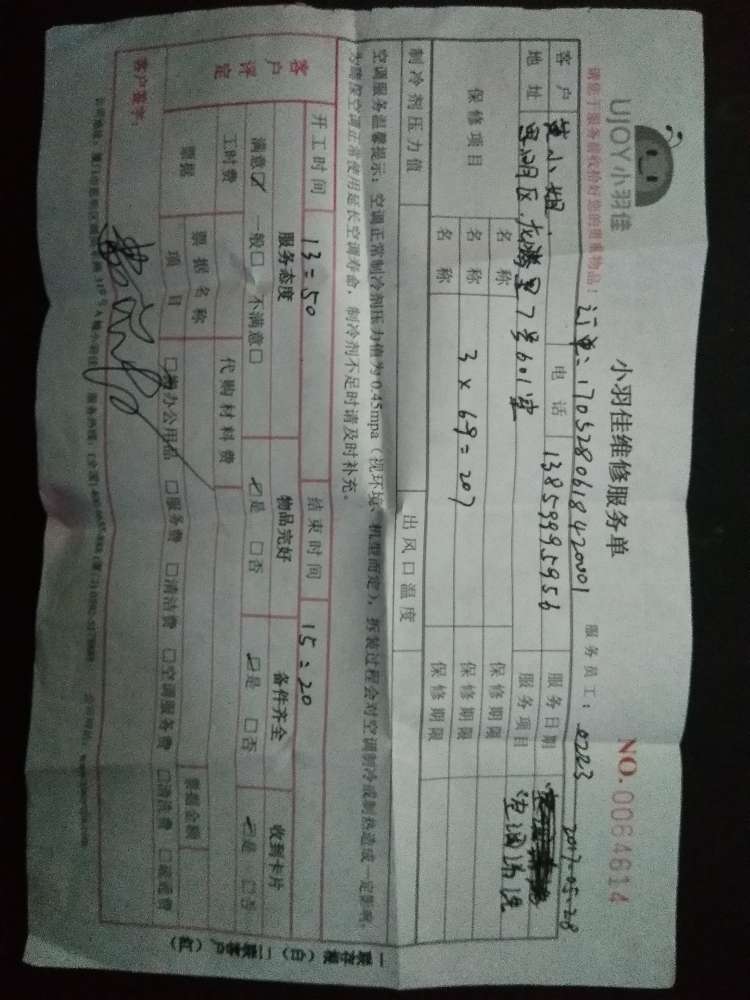 UJOY小羽佳
小羽佳维修服务单
NO. 0064614
请您于服务前收拾好您的贵重物品!
订单:1705280618420001
服务员工:0223
客户
小姐
电话
13859995956
服务日期
2017.05.28
地址
思明区.龙腾里7号601室
服务项目
空调清洗
保修项目
名称
保修期限
名称
3×69=207
保修期限
名称
保修期限
制冷剂压力值
出风口温度
空调服务温馨提示:空调正常制冷剂压力值为0.45mpa(视环境、机型而定),拆装过程会对空调制冷或制热造成一定影响,
为确保空调正常使用延长空调寿命,制冷剂不足时请及时补充。
开工时间
13:50
结束时间
15:20
客户评定
服务态度
物品完好
备件齐全
收到卡片
满意☑ 一般□ 不满意□
☑是 □否
☑是 □否
☑是 □否
工时费
代购材料费
票据
票据名称
票据金额
项目
□办公用品 □服务费 □清洁费 □空调服务费 □清洗费
客户签字:
一联存根(白)二联客户(红)